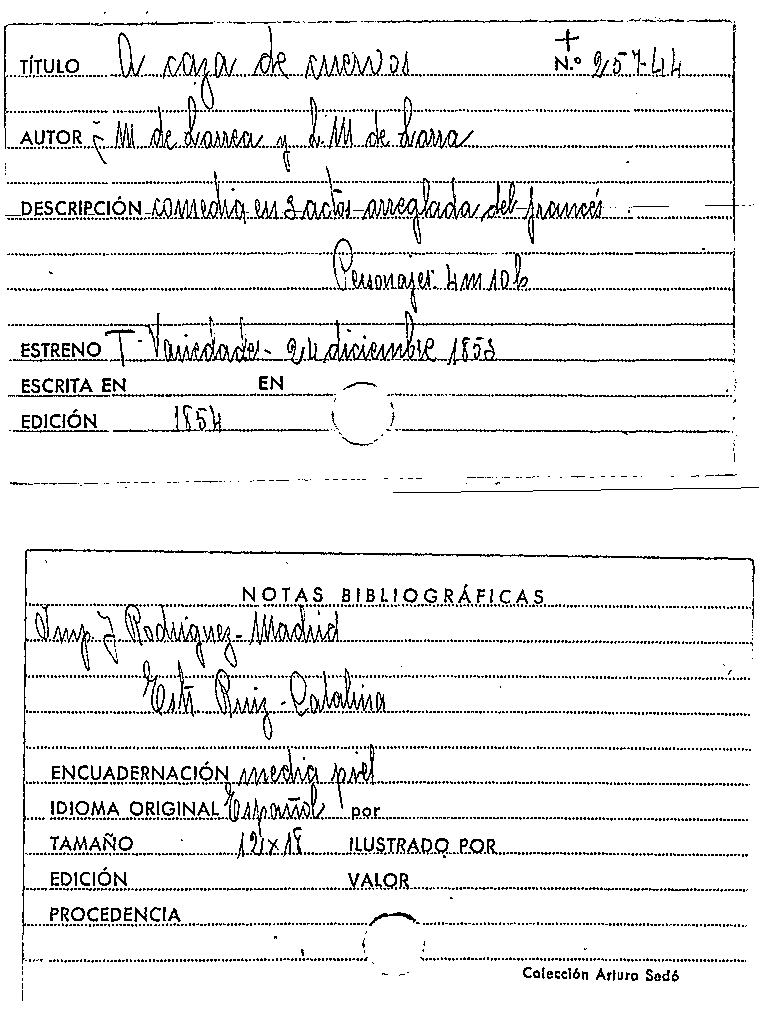 TÍTULO A caza de cuervos N.º 257-44
AUTOR M de Larrea y L. M de Larra
DESCRIPCIÓN comedia en 3 actos arreglada del francés
Personajes. 4 m 10 h
ESTRENO T. Variedades - 24 diciembre 1853
ESCRITA EN EN
EDICIÓN 1854
NOTAS BIBLIOGRÁFICAS
Imp. J Rodriguez - Madrid
Estr. Ruiz - Catalina
ENCUADERNACIÓN media piel
IDIOMA ORIGINAL Español por
TAMAÑO 12 x 18 ILUSTRADO POR
EDICIÓN VALOR
PROCEDENCIA
Colección Arturo Sedó